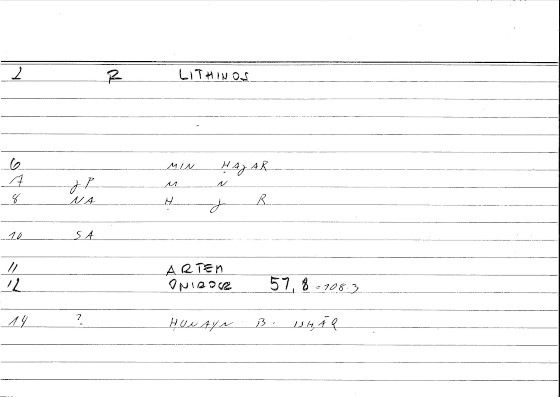 2 R LITHINOS
6 MIN ḤAJAR
7 JP M N
8 NA Ḥ J R
10 SA
11 ARTEM
12 ONIROCR 57, 8 - 108.3
14 ? ḤUNAYN B. ISḤĀQ